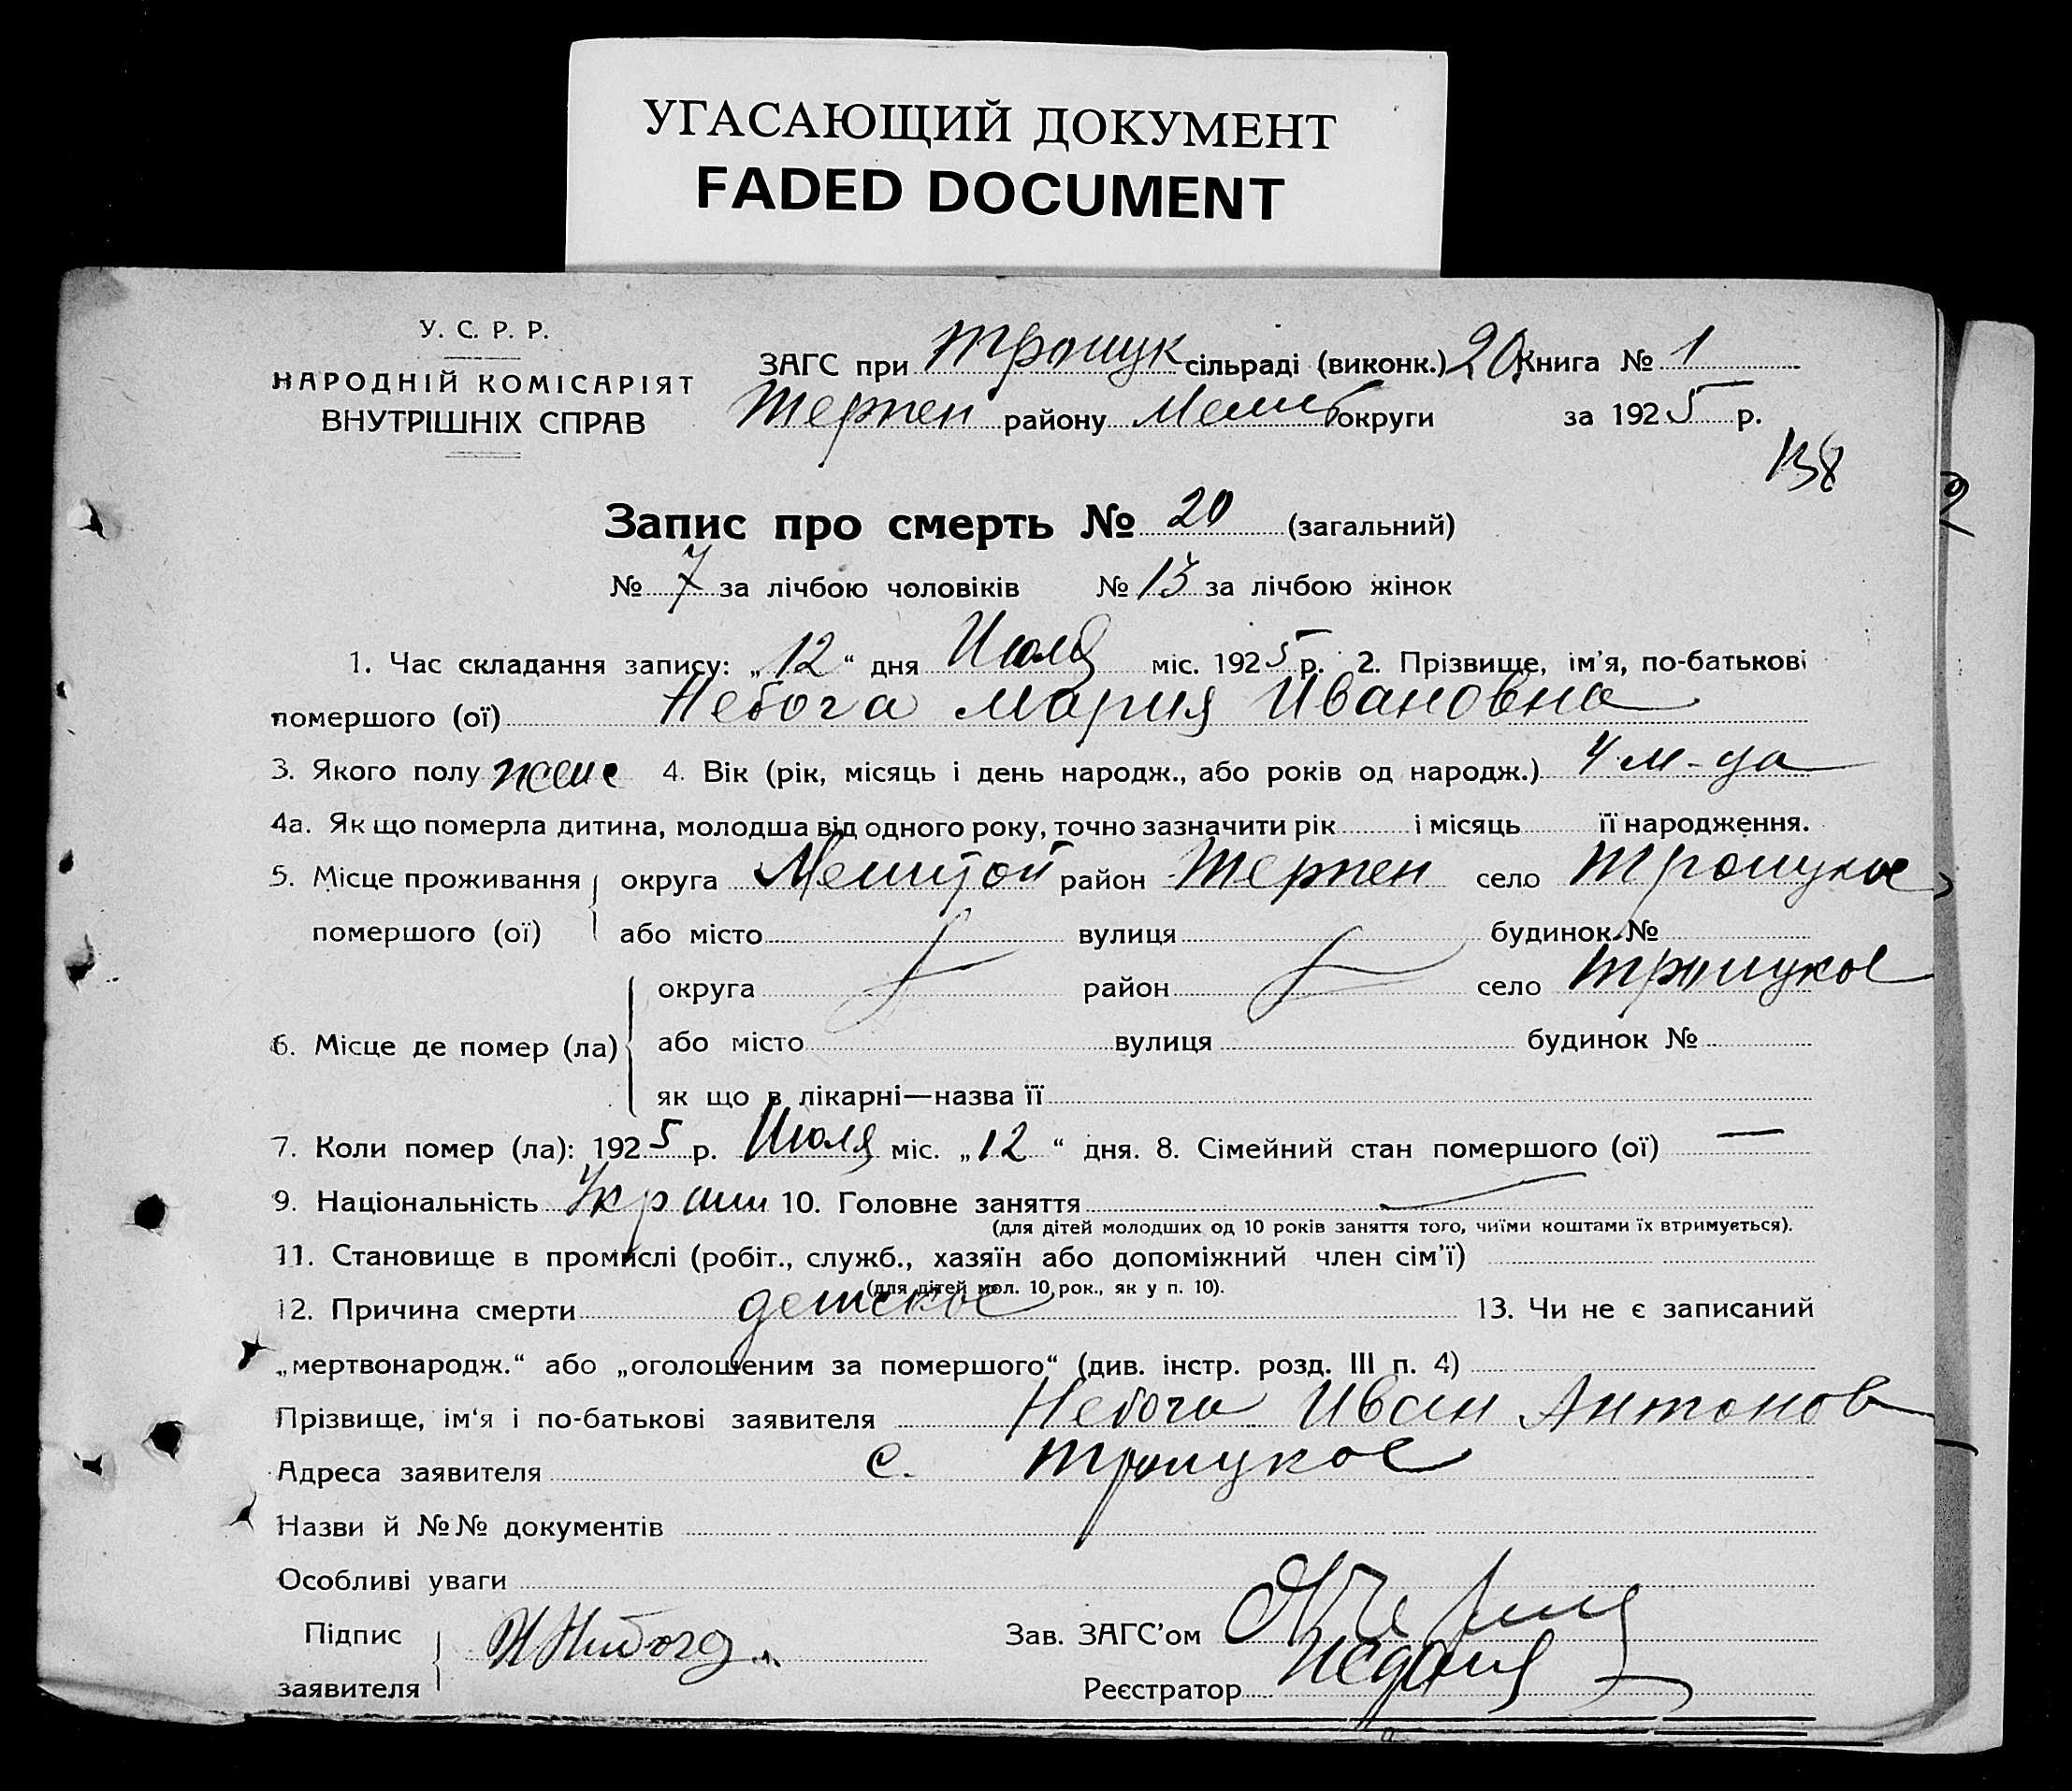 УГАСАЮЩИЙ ДОКУМЕНТ
FADED DOCUMENT
У. С. Р. Р.
НАРОДНІЙ КОМІСАРІЯТ
ВНУТРІШНІХ СПРАВ
ЗАГС при Троицк сільраді (виконк.) 20 Книга № 1
Терпен району Мелит округи за 1925 р.
138
Запис про смерть № 20 (загальний)
№ 7 за лічбою чоловіків № 13 за лічбою жінок
1. Час складання запису: „12“ дня Июля міс. 1925 р. 2. Прізвище, ім’я, по-батькові
помершого (ої) Небога Мария Ивановна
3. Якого полу женс 4. Вік (рік, місяць і день народж., або років од народж.) 4 м-ца
4а. Як що померла дитина, молодша від одного року, точно зазначити рік і місяць її народження.
5. Місце проживання помершого (ої) округа Мелитоп район Терпен село Троицкое
або місто вулиця будинок №
6. Місце де помер (ла) округа район село Троицкое
або місто вулиця будинок №
як що в лікарні—назва її
7. Коли помер (ла): 1925 р. Июля міс. „12“ дня. 8. Сімейний стан помершого (ої) —
9. Національність Украин 10. Головне заняття
(для дітей молодших од 10 років заняття того, чиїми коштами їх втримується).
11. Становище в промислі (робіт., служб., хазяїн або допоміжний член сім’ї)
(для дітей мол. 10 рок., як у п. 10).
12. Причина смерти детское 13. Чи не є записаний
„мертвонародж.“ або „оголошеним за помершого“ (див. інстр. розд. III п. 4)
Прізвище, ім‘я і по-батькові заявителя Небога Иван Антонов
Адреса заявителя с. Троицкое
Назви й №№ документів
Особливі уваги
Підпис заявителя И Небога
Зав. ЗАГС’ом
Реєстратор